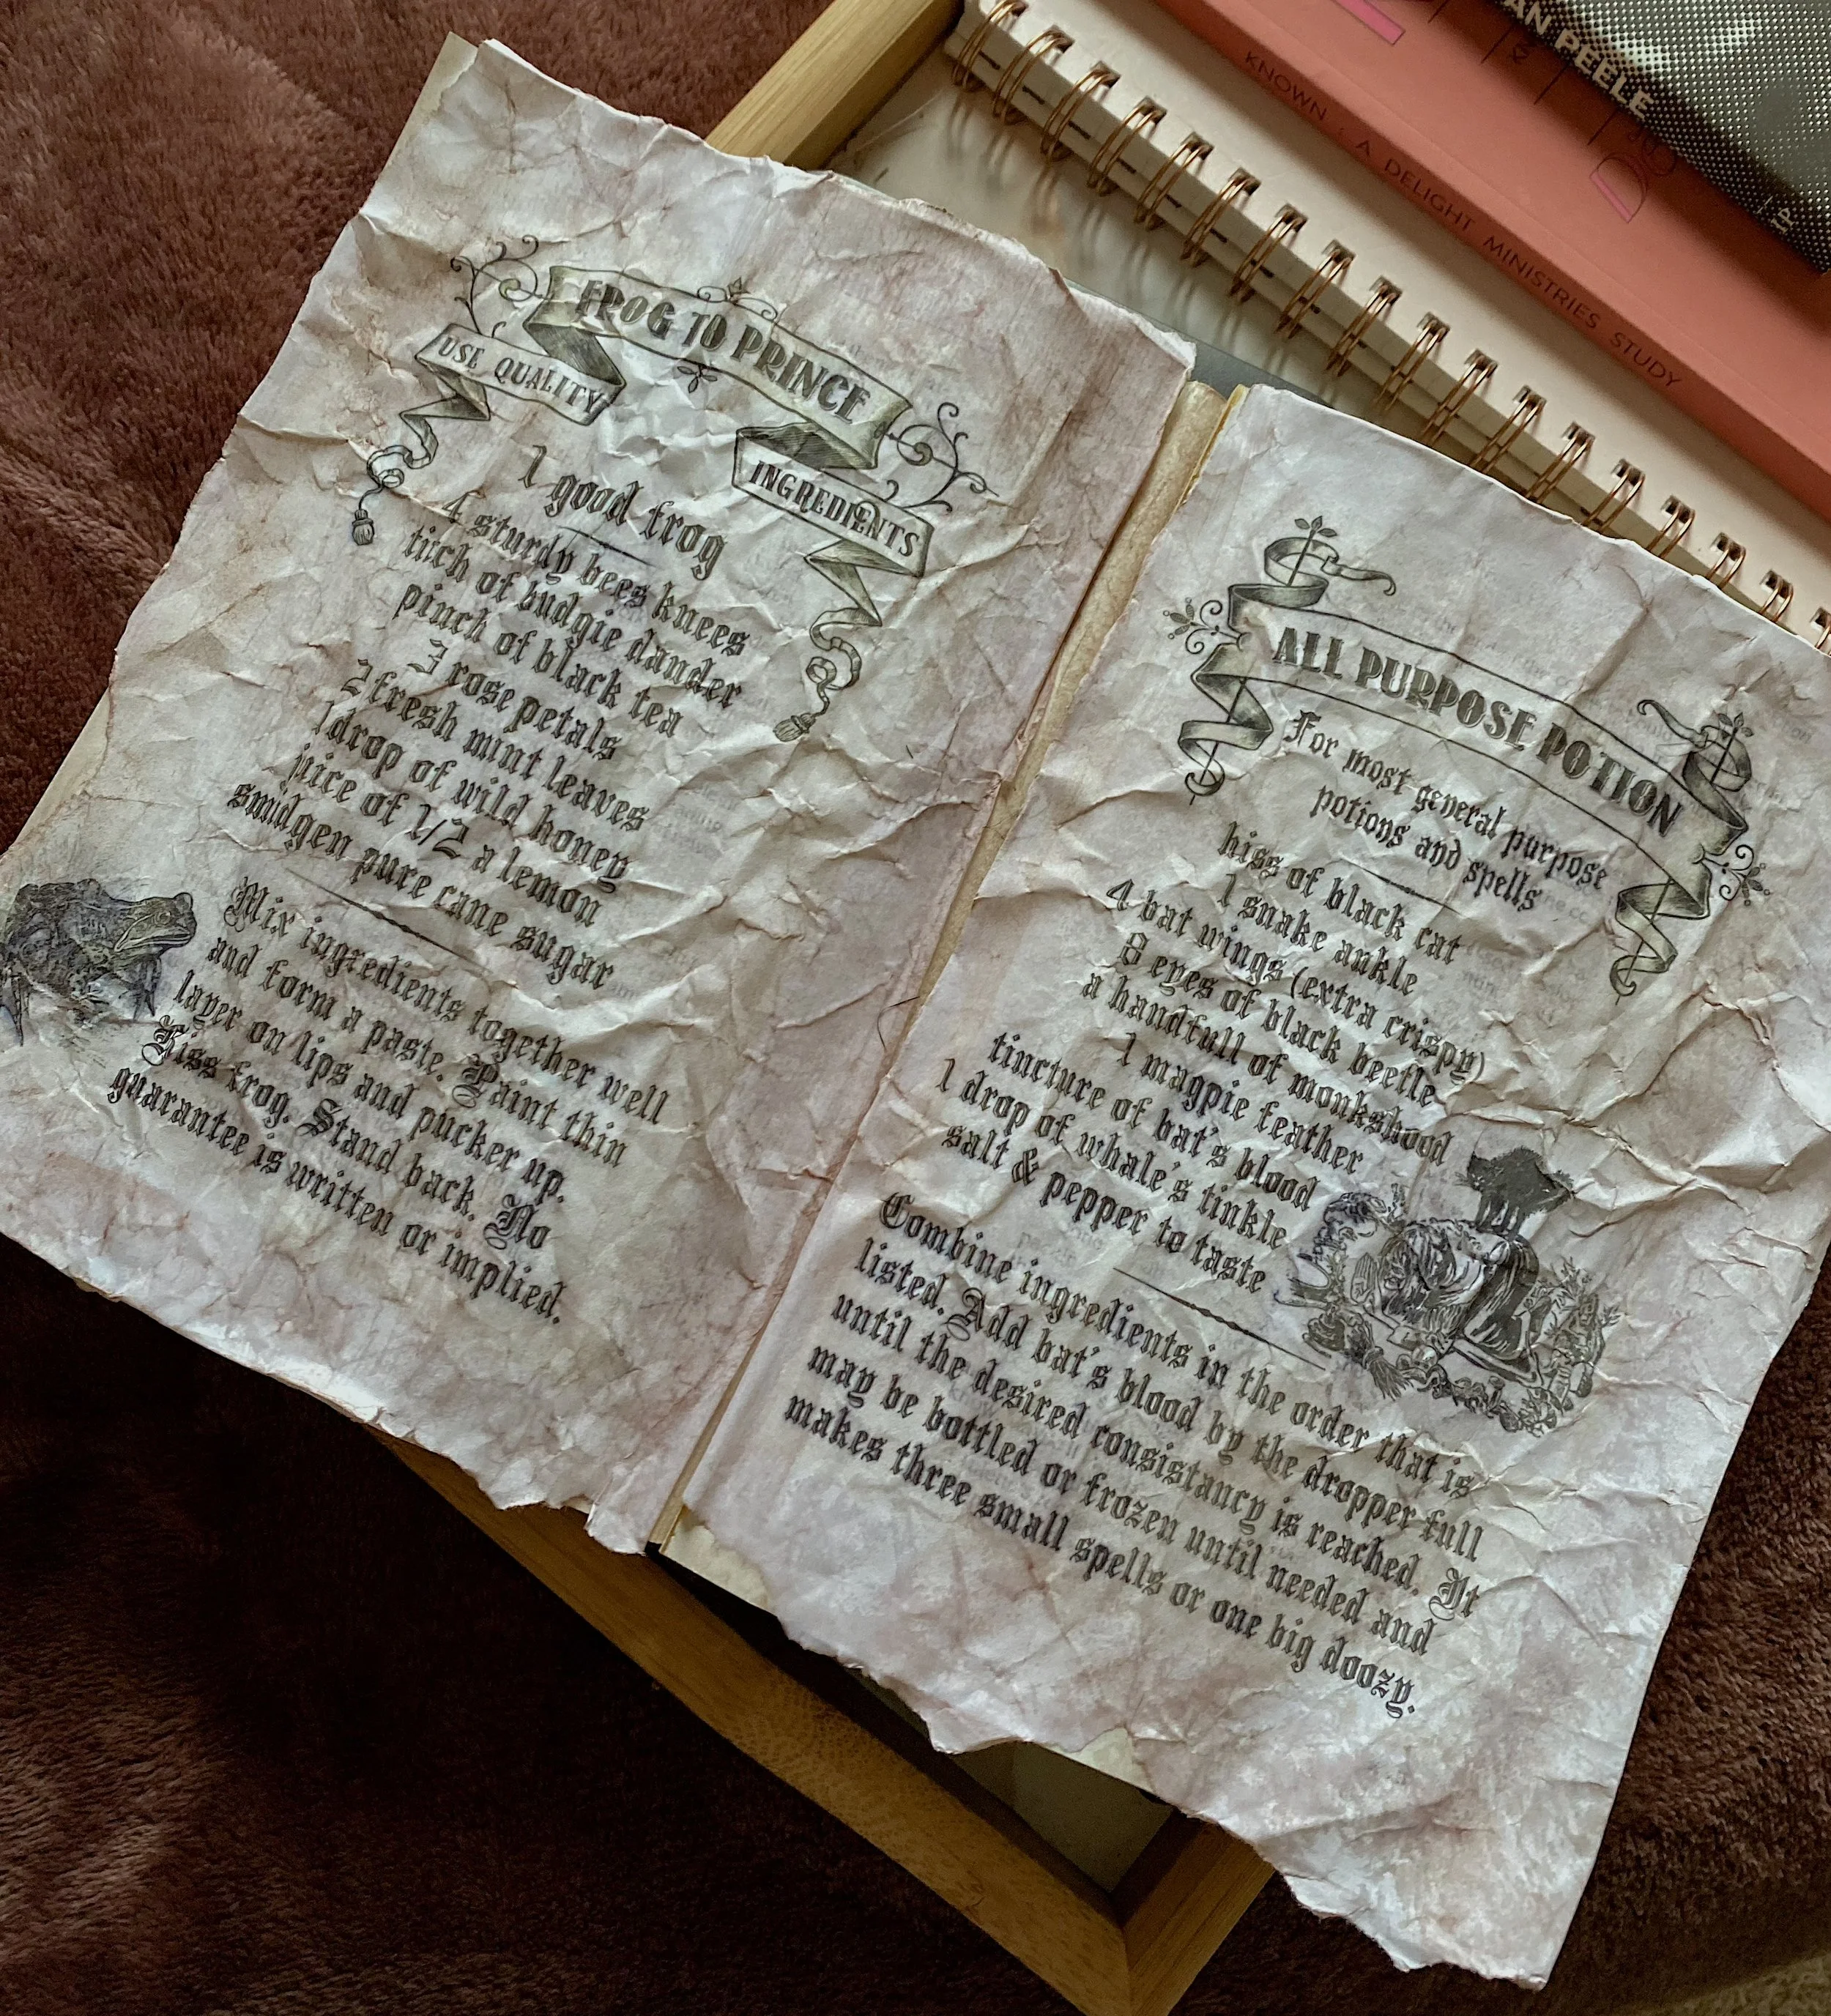 FROG TO PRINCE
USE QUALITY
INGREDIENTS
1 good frog
4 sturdy bees knees
titch of budgie dander
pinch of black tea
3 rose petals
2 fresh mint leaves
1 drop of wild honey
juice of 1/2 a lemon
smidgen pure cane sugar
Mix ingredients together well
and form a paste. Paint thin
layer on lips and pucker up.
Kiss frog. Stand back. No
guarantee is written or implied.
ALL PURPOSE POTION
For most general purpose
potions and spells
hiss of black cat
1 snake ankle
4 bat wings (extra crispy)
8 eyes of black beetle
a handfull of monkshood
1 magpie feather
tincture of bat's blood
1 drop of whale's tinkle
salt & pepper to taste
Combine ingredients in the order that is
listed. Add bat's blood by the dropper full
until the desired consistancy is reached. It
may be bottled or frozen until needed and
makes three small spells or one big doozy.
KNOWN : A DELIGHT MINISTRIES STUDY
PEELE